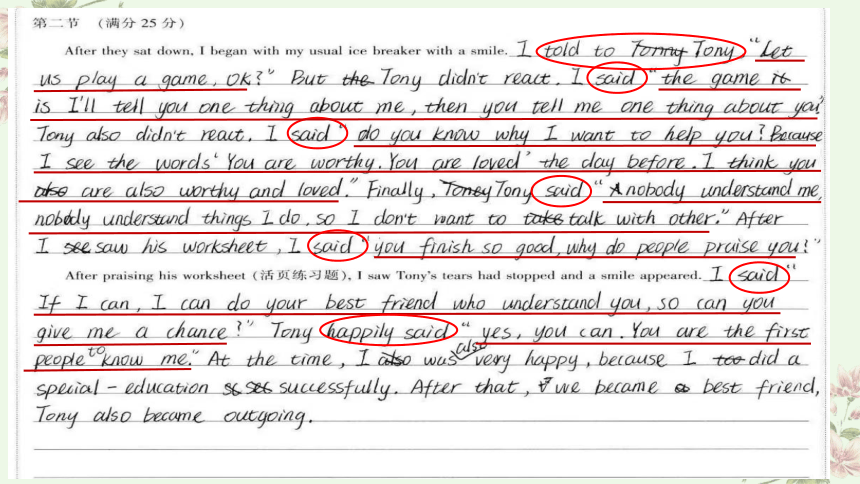 第二节 (满分 25 分)
After they sat down, I began with my usual ice breaker with a smile. I told to Tonny Tony "Let
us play a game, OK?" But the Tony didn't react. I said "the game it
is I'll tell you one thing about me, then you tell me one thing about you."
Tony also didn't react. I said "do you know why I want to help you? Because
I see the words 'You are worthy. You are loved' the day before. I think you
also are also worthy and loved." Finally, Toney Tony said "nobody understand me,
nobody understand things I do, so I don't want to take talk with other." After
I see saw his worksheet, I said "you finish so good, why do people praise you?"
After praising his worksheet (活页练习题), I saw Tony's tears had stopped and a smile appeared. I said "
If I can, I can do your best friend who understand you, so can you
give me a chance?" Tony happily said "yes, you can. You are the first
people to know me." At the time, I also was also very happy, because I too did a
special-education successfully. After that, we became a best friend,
Tony also became outgoing.